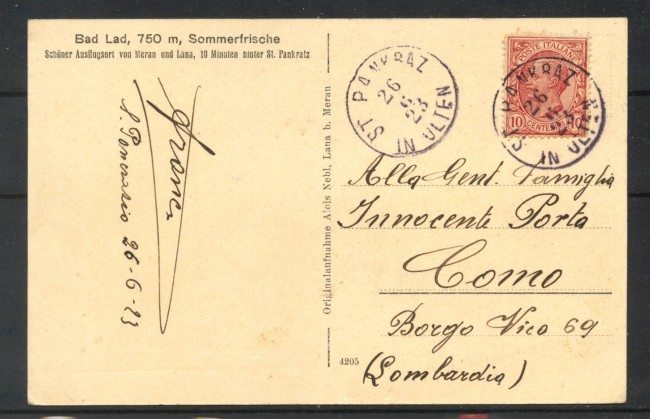 Bad Lad, 750 m, Sommerfrische
Schöner Ausflugsort von Meran und Lana, 10 Minuten hinter St. Pankratz
S. Pancrazio 26-6-23
Originalaufnahme Alois Nebl, Lana b. Meran
4205
ST PANKRAZ
26
6
23
IN ULTEN
POSTE ITALIANE
10 CENTESIMI 10
ST PANKRAZ
26
IN ULTEN
Alla Gent. Famiglia
Innocente Porta
Como
Borgo Vico 69
(Lombardia)